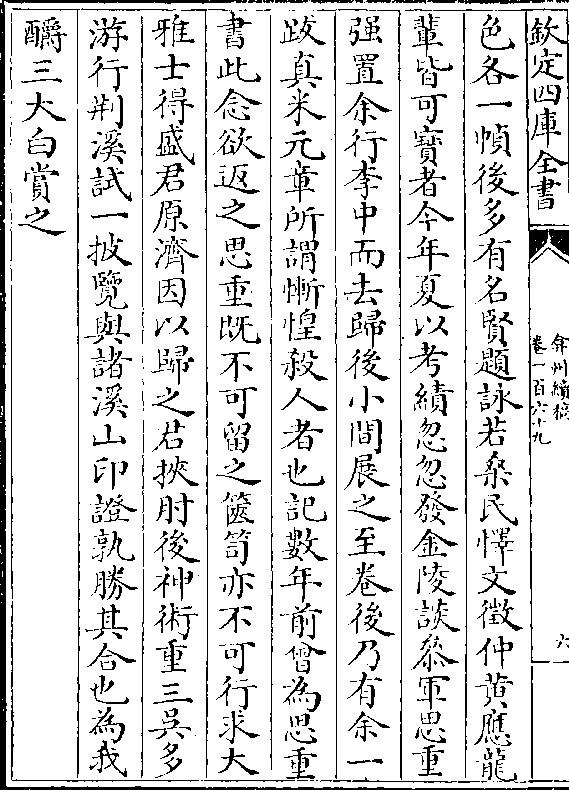 欽定四庫全書
弇州續稿
卷一百六十九
六
色各一幀後多有名賢題詠若桑民懌文徵仲黄應龍
輩皆可寳者今年夏以考績忽忽發金陵談叅軍思重
强置余行李中而去歸後小間展之至卷後乃有余一
跋真米元章所謂慚惶殺人者也記數年前曽為思重
書此念欲返之思重既不可留之篋笥亦不可行求大
雅士得盛君原濟因以歸之君挾肘後神術重三吳多
游行荆溪試一披覽與諸溪山印證孰勝其合也為我
釂三大白賞之